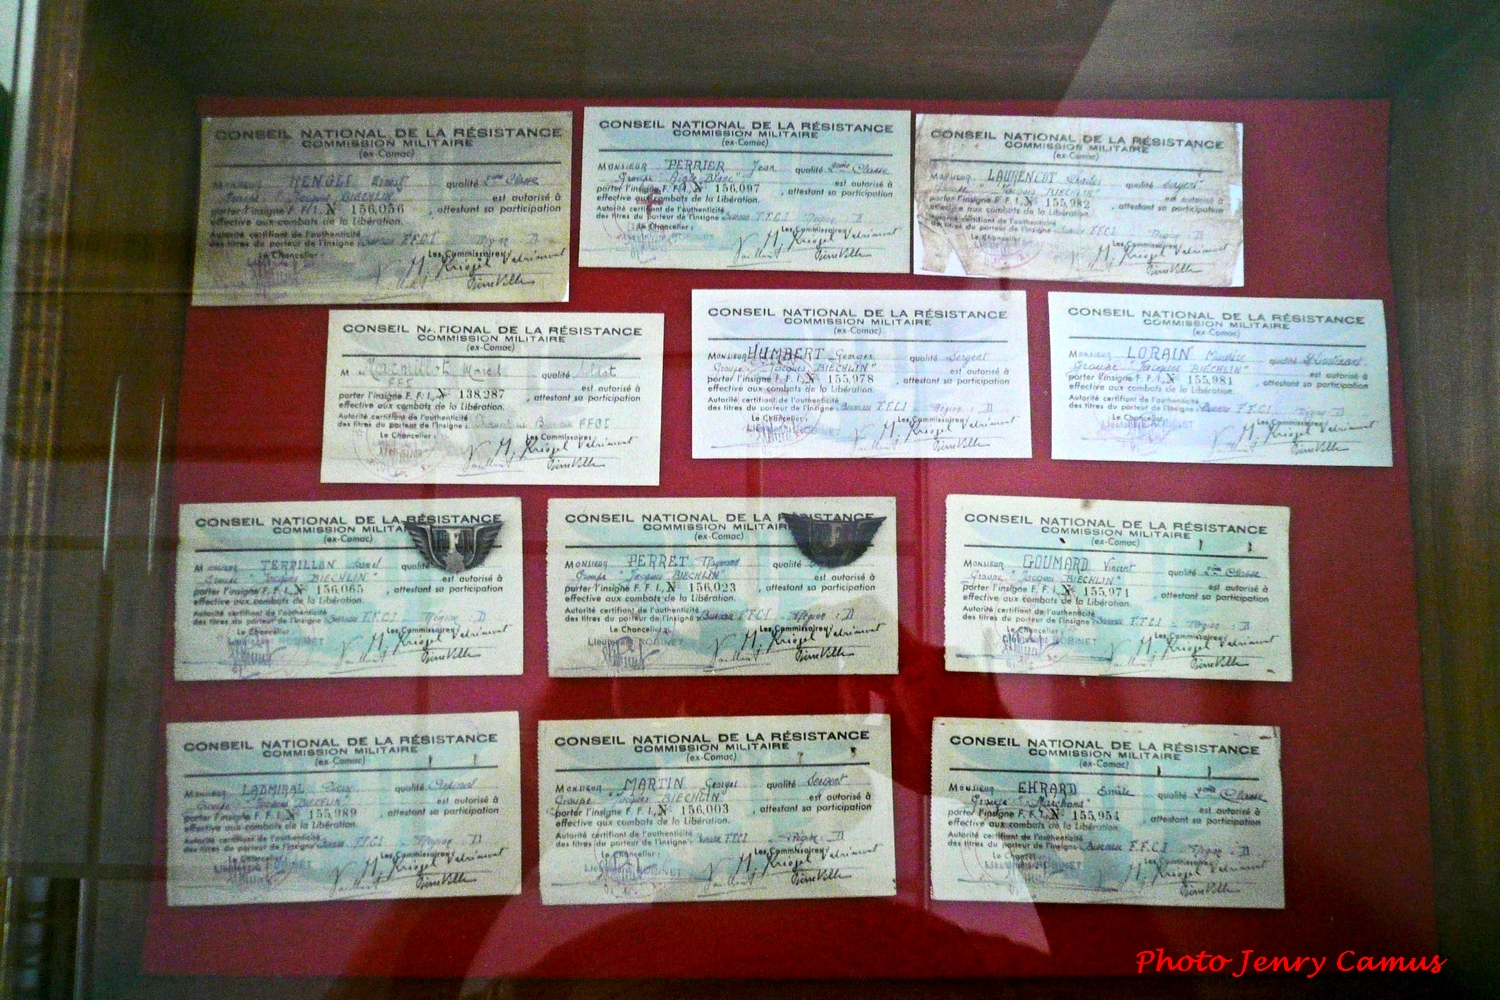 CONSEIL NATIONAL DE LA RÉSISTANCE
COMMISSION MILITAIRE
(ex-Comac)
MONSIEUR MENGLI Ernest qualité 2ème Classe
Groupe "Jacques BIECHLIN" est autorisé à
porter l'insigne F. F. I., N° 156,056 , attestant sa participation
effective aux combats de la Libération.
Autorité certifiant de l'authenticité
des titres du porteur de l'insigne Bureau F.F.C.I Région : D
Le Chancelier : Les Commissaires :
M. Kriegel Valrimont
Vaillant PierreVillon
CONSEIL NATIONAL DE LA RÉSISTANCE
COMMISSION MILITAIRE
(ex-Comac)
MONSIEUR PERRIER Jean qualité 2ème Classe
Groupe "Aigle Blanc" est autorisé à
porter l'insigne F. F. I., N° 156,097 , attestant sa participation
effective aux combats de la Libération.
Autorité certifiant de l'authenticité
des titres du porteur de l'insigne Bureau F.F.C.I Région : D
Le Chancelier : Les Commissaires :
M. Kriegel Valrimont
Vaillant PierreVillon
CONSEIL NATIONAL DE LA RÉSISTANCE
COMMISSION MILITAIRE
(ex-Comac)
MONSIEUR LAURENÇOT Charles qualité Sergent
Groupe "Jacques BIECHLIN" est autorisé à
porter l'insigne F. F. I., N° 155,982 , attestant sa participation
effective aux combats de la Libération.
Autorité certifiant de l'authenticité
des titres du porteur de l'insigne Bureau F.F.C.I Région : D
Le Chancelier : Les Commissaires :
M. Kriegel Valrimont
Vaillant PierreVillon
CONSEIL NATIONAL DE LA RÉSISTANCE
COMMISSION MILITAIRE
(ex-Comac)
M Marcel qualité Soldat
FFI est autorisé à
porter l'insigne F. F. I., N° 138,287 , attestant sa participation
effective aux combats de la Libération.
Autorité certifiant de l'authenticité
des titres du porteur de l'insigne Bureau FFCI
Le Chancelier : Les Commissaires :
M. Kriegel Valrimont
Vaillant PierreVillon
CONSEIL NATIONAL DE LA RÉSISTANCE
COMMISSION MILITAIRE
(ex-Comac)
MONSIEUR HUMBERT Georges qualité Sergent
Groupe "Jacques BIECHLIN" est autorisé à
porter l'insigne F. F. I., N° 155,978 , attestant sa participation
effective aux combats de la Libération.
Autorité certifiant de l'authenticité
des titres du porteur de l'insigne Bureau F.F.C.I Région : D
Le Chancelier : Les Commissaires :
Lieutenant ROBINET M. Kriegel Valrimont
Vaillant PierreVillon
CONSEIL NATIONAL DE LA RÉSISTANCE
COMMISSION MILITAIRE
(ex-Comac)
MONSIEUR LORAIN Maurice qualité S/Lieutenant
Groupe "Jacques BIECHLIN" est autorisé à
porter l'insigne F. F. I., N° 155,981 , attestant sa participation
effective aux combats de la Libération.
Autorité certifiant de l'authenticité
des titres du porteur de l'insigne Bureau F.F.C.I Région : D
Le Chancelier : Les Commissaires :
Lieutenant ROBINET M. Kriegel Valrimont
Vaillant PierreVillon
CONSEIL NATIONAL DE LA RÉSISTANCE
COMMISSION MILITAIRE
(ex-Comac)
MONSIEUR TERDILLON qualité
Groupe "Jacques BIECHLIN" est autorisé à
porter l'insigne F. F. I., N° 156,065 , attestant sa participation
effective aux combats de la Libération.
Autorité certifiant de l'authenticité
des titres du porteur de l'insigne Bureau F.F.C.I Région : D
Le Chancelier : Les Commissaires :
Lieutenant ROBINET M. Kriegel Valrimont
Vaillant PierreVillon
CONSEIL NATIONAL DE LA RÉSISTANCE
COMMISSION MILITAIRE
(ex-Comac)
MONSIEUR PERRET Raymond qualité
Groupe "Jacques BIECHLIN" est autorisé à
porter l'insigne F. F. I., N° 156,023 , attestant sa participation
effective aux combats de la Libération.
Autorité certifiant de l'authenticité
des titres du porteur de l'insigne Bureau F.F.C.I Région : D
Le Chancelier : Les Commissaires :
Lieutenant ROBINET M. Kriegel Valrimont
Vaillant PierreVillon
CONSEIL NATIONAL DE LA RÉSISTANCE
COMMISSION MILITAIRE
(ex-Comac)
MONSIEUR GOUMARD Vincent qualité 2ème Classe
Groupe "Jacques BIECHLIN" est autorisé à
porter l'insigne F. F. I., N° 155,971 , attestant sa participation
effective aux combats de la Libération.
Autorité certifiant de l'authenticité
des titres du porteur de l'insigne Bureau F.F.C.I Région : D
Le Chancelier : Les Commissaires :
Lieutenant ROBINET M. Kriegel Valrimont
Vaillant PierreVillon
CONSEIL NATIONAL DE LA RÉSISTANCE
COMMISSION MILITAIRE
(ex-Comac)
MONSIEUR LADMIRAL qualité
Groupe "Jacques BIECHLIN" est autorisé à
porter l'insigne F. F. I., N° 155,989 , attestant sa participation
effective aux combats de la Libération.
Autorité certifiant de l'authenticité
des titres du porteur de l'insigne Bureau F.F.C.I Région : D
Le Chancelier : Les Commissaires :
Lieutenant ROBINET M. Kriegel Valrimont
Vaillant PierreVillon
CONSEIL NATIONAL DE LA RÉSISTANCE
COMMISSION MILITAIRE
(ex-Comac)
MONSIEUR MARTIN Georges qualité Sergent
Groupe "Jacques BIECHLIN" est autorisé à
porter l'insigne F. F. I., N° 156,003 , attestant sa participation
effective aux combats de la Libération.
Autorité certifiant de l'authenticité
des titres du porteur de l'insigne Bureau F.F.C.I Région : D
Le Chancelier : Les Commissaires :
Lieutenant ROBINET M. Kriegel Valrimont
Vaillant PierreVillon
CONSEIL NATIONAL DE LA RÉSISTANCE
COMMISSION MILITAIRE
(ex-Comac)
MONSIEUR EHRARD Emile qualité 2ème Classe
Groupe "Marchand" est autorisé à
porter l'insigne F. F. I., N° 155,954 , attestant sa participation
effective aux combats de la Libération.
Autorité certifiant de l'authenticité
des titres du porteur de l'insigne Bureau F.F.C.I Région : D
Le Chancelier : Les Commissaires :
Lieutenant ROBINET M. Kriegel Valrimont
Vaillant PierreVillon
Photo Jenry Camus